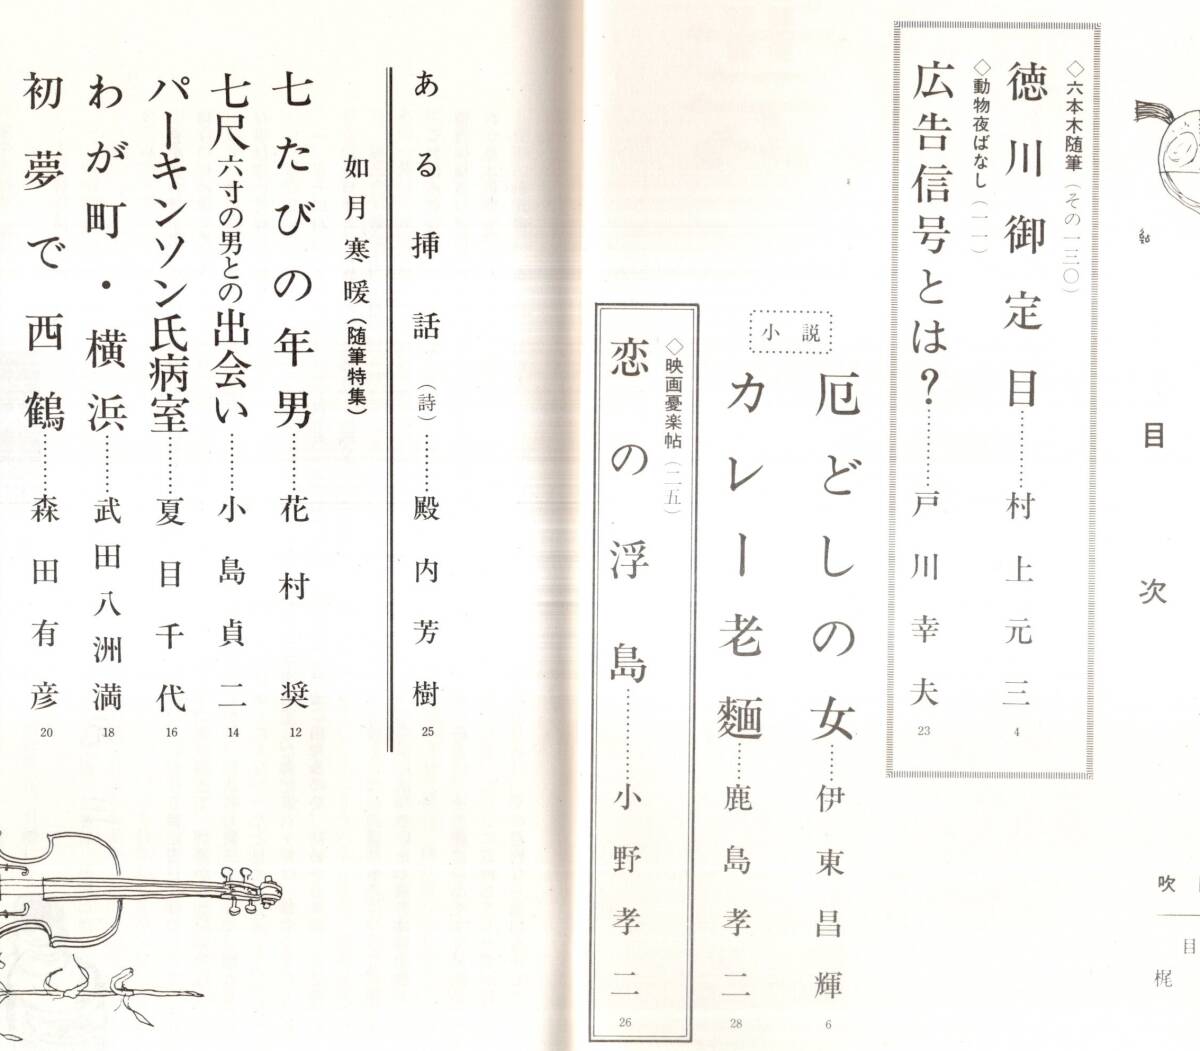 目次
吹
目
梶
◇六本木随筆（その一三〇）
徳川御定目…………村上元三 4
◇動物夜ばなし（一一）
広告信号とは？…………戸川幸夫 23
小説
厄どしの女……伊東昌輝 6
カレー老麵……鹿島孝二 28
◇映画憂楽帖（二五）
恋の浮島…………小野孝二 26
ある挿話（詩）………殿内芳樹 25
如月寒暖（随筆特集）
七たびの年男………花村奨 12
七尺六寸の男との出会い………小島貞二 14
パーキンソン氏病室………夏目千代 16
わが町・横浜………武田八洲満 18
初夢で西鶴………森田有彦 20